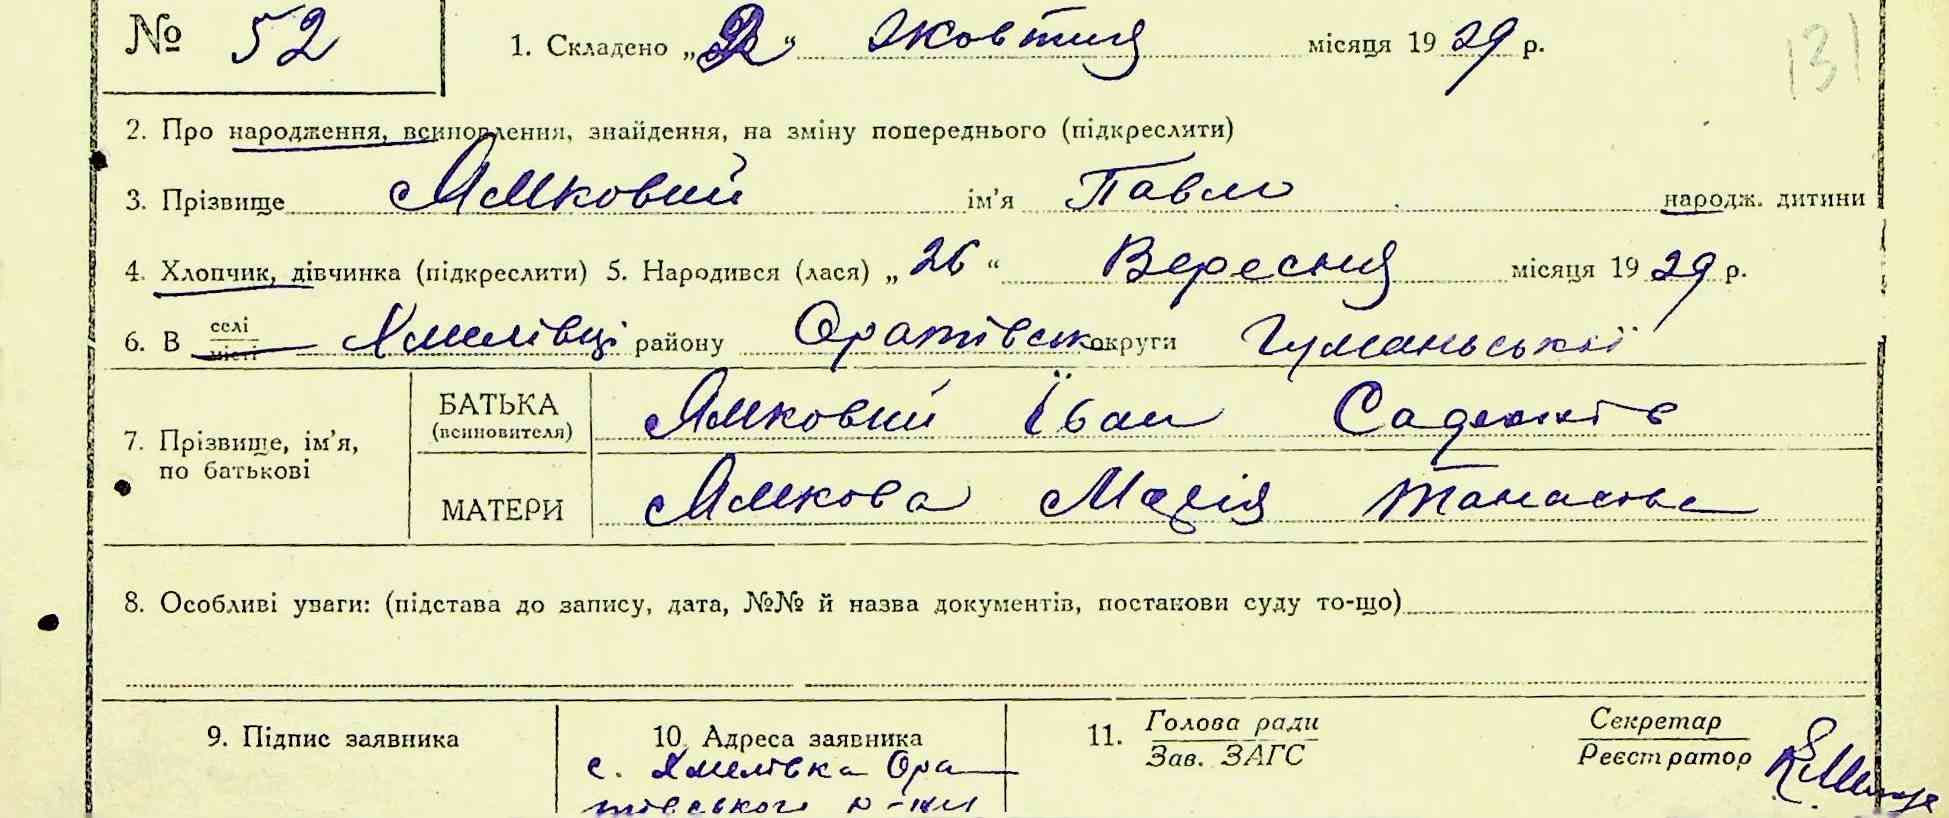 № 52 1. Складено „2“ Жовтня місяця 1929 р. 131
2. Про народження, всиновлення, знайдення, на зміну попереднього (підкреслити)
3. Прізвище Ямковий ім'я Павло народж. дитини
4. Хлопчик, дівчинка (підкреслити) 5. Народився (лася) „26“ Вересня місяця 1929 р.
6. В селі місті Хмелівці району Оратівськ округи Гуманьської
7. Прізвище, ім'я, по батькові
БАТЬКА (всиновителя) Ямковий Їван
МАТЕРИ Ямкова Марія
8. Особливі уваги: (підстава до запису, дата, №№ й назва документів, постанови суду то-що)
9. Підпис заявника 10. Адреса заявника 11. Голова ради Секретар
Зав. ЗАГС Реєстратор
с. Хмелівка Ора
тівського р-ну